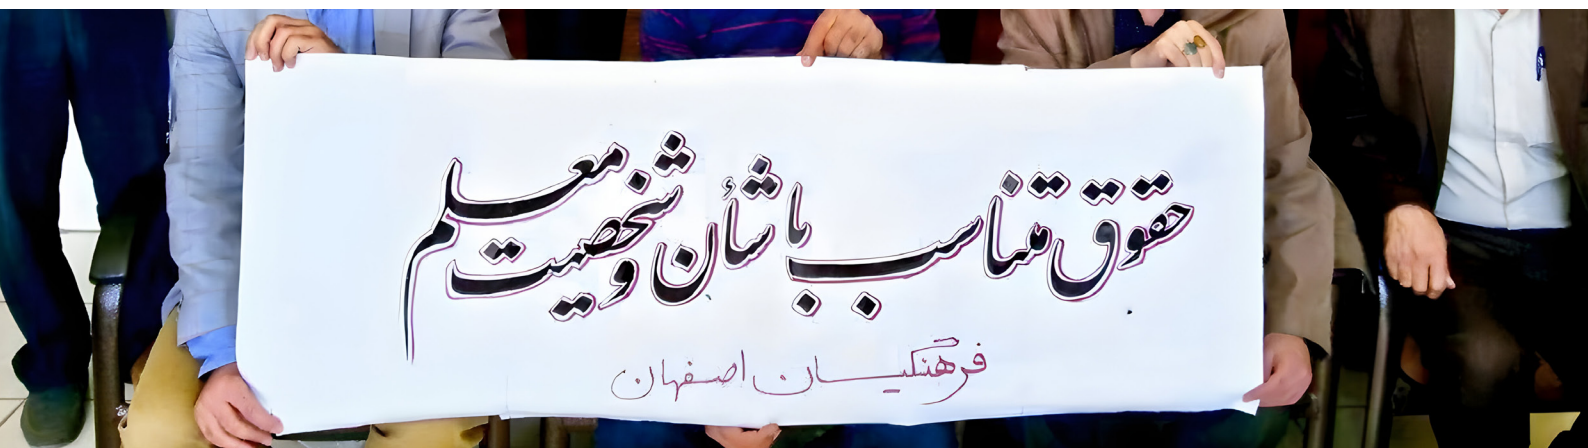 حقوق متناسب با شأن و شخصیت معلم
فرهنگیان اصفهان